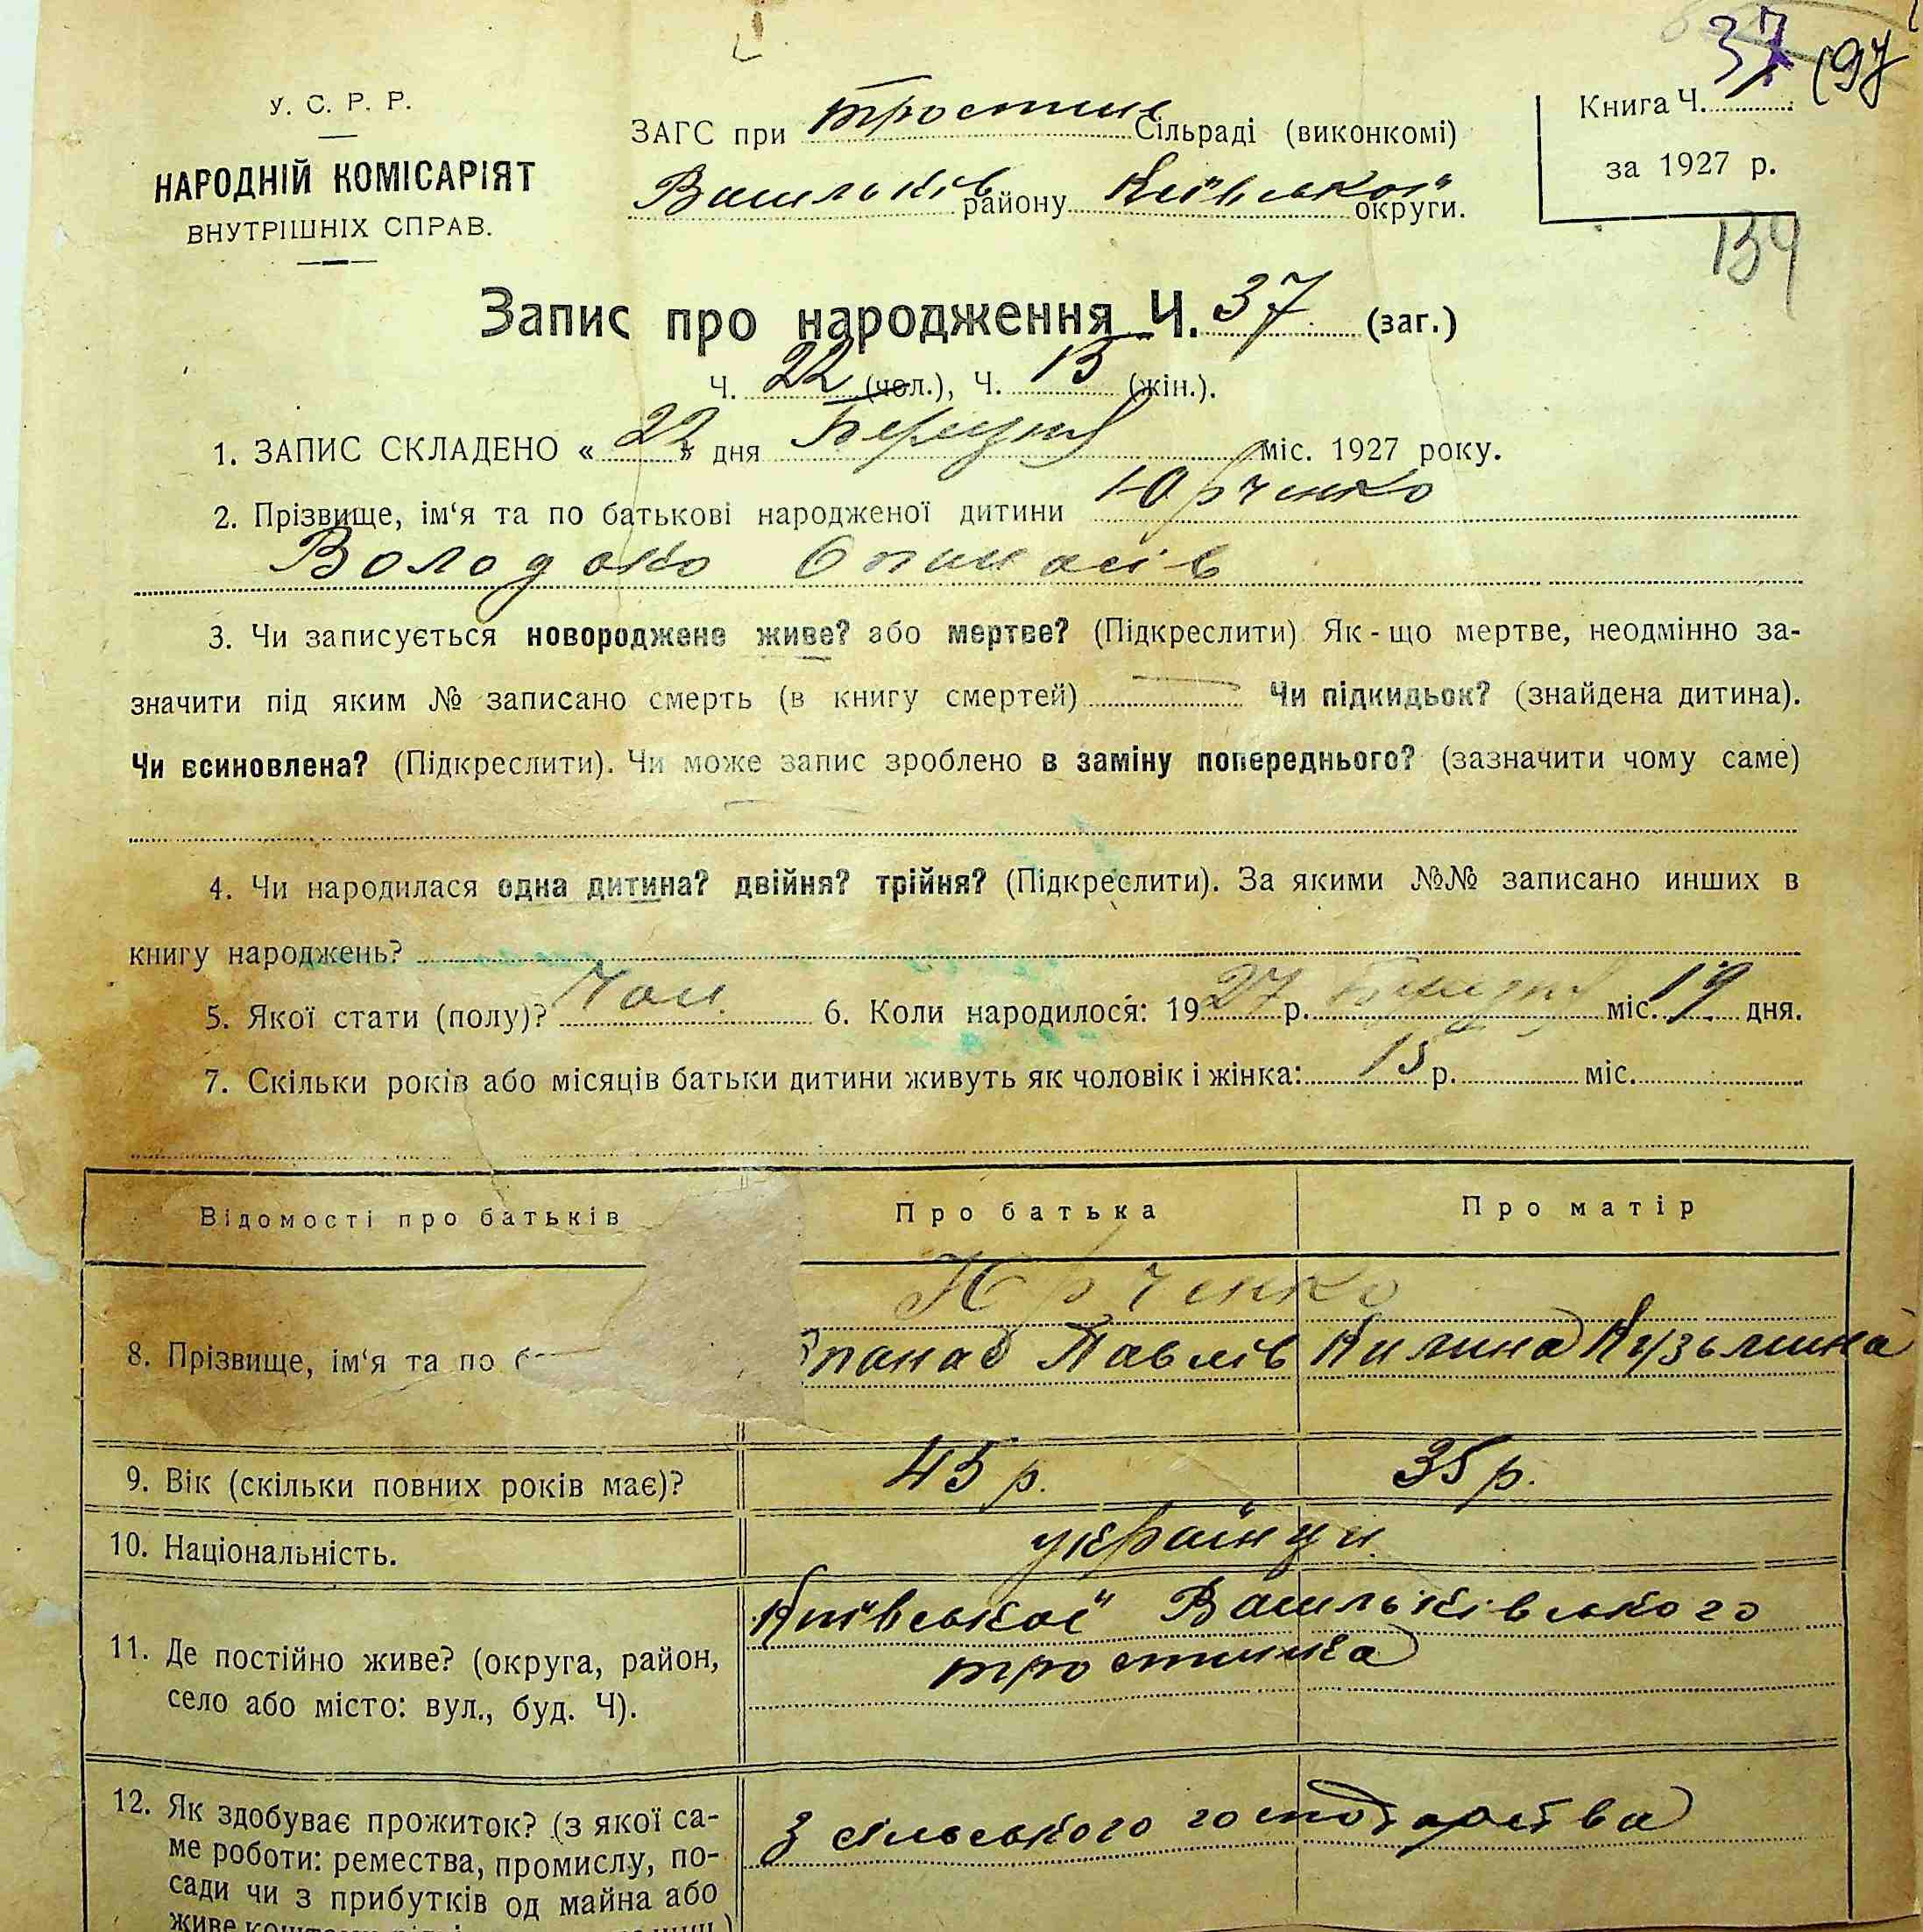 37 (97
У. С. Р. Р.
НАРОДНІЙ КОМІСАРІЯТ
ВНУТРІШНІХ СПРАВ.
ЗАГС при Тростин Сільраді (виконкомі)
Васильків району Київської округи.
Книга Ч.
за 1927 р.
134
Запис про народження Ч. 37 (заг.)
Ч. 22 (чол.), Ч. 15 (жін.).
1. ЗАПИС СКЛАДЕНО « 22 » дня Березня міс. 1927 року.
2. Прізвище, ім'я та по батькові народженої дитини Юрченко
Володько Опанасів
3. Чи записується новороджене живе? або мертве? (Підкреслити) Як-що мертве, неодмінно за-
значити під яким № записано смерть (в книгу смертей) Чи підкидьок? (знайдена дитина).
Чи всиновлена? (Підкреслити). Чи може запис зроблено в заміну попереднього? (зазначити чому саме)
4. Чи народилася одна дитина? двійня? трійня? (Підкреслити). За якими №№ записано инших в
книгу народжень?
5. Якої стати (полу)? Чол. 6. Коли народилося: 1927 р. Березня міс. 19 дня.
7. Скільки років або місяців батьки дитини живуть як чоловік і жінка: 15 р. міс.
Відомості про батьків Про батька Про матір
Юрченко
8. Прізвище, ім'я та по б Опанас Павлів Килина Кузьмина
9. Вік (скільки повних років має)? 45 р. 35 р.
10. Національність. українци
11. Де постійно живе? (округа, район,
село або місто: вул., буд. Ч).
Київської Васильківського
Тростинка
12. Як здобуває прожиток? (з якої са-
ме роботи: ремества, промислу, по-
сади чи з прибутків од майна або
живе
З сільського господарства